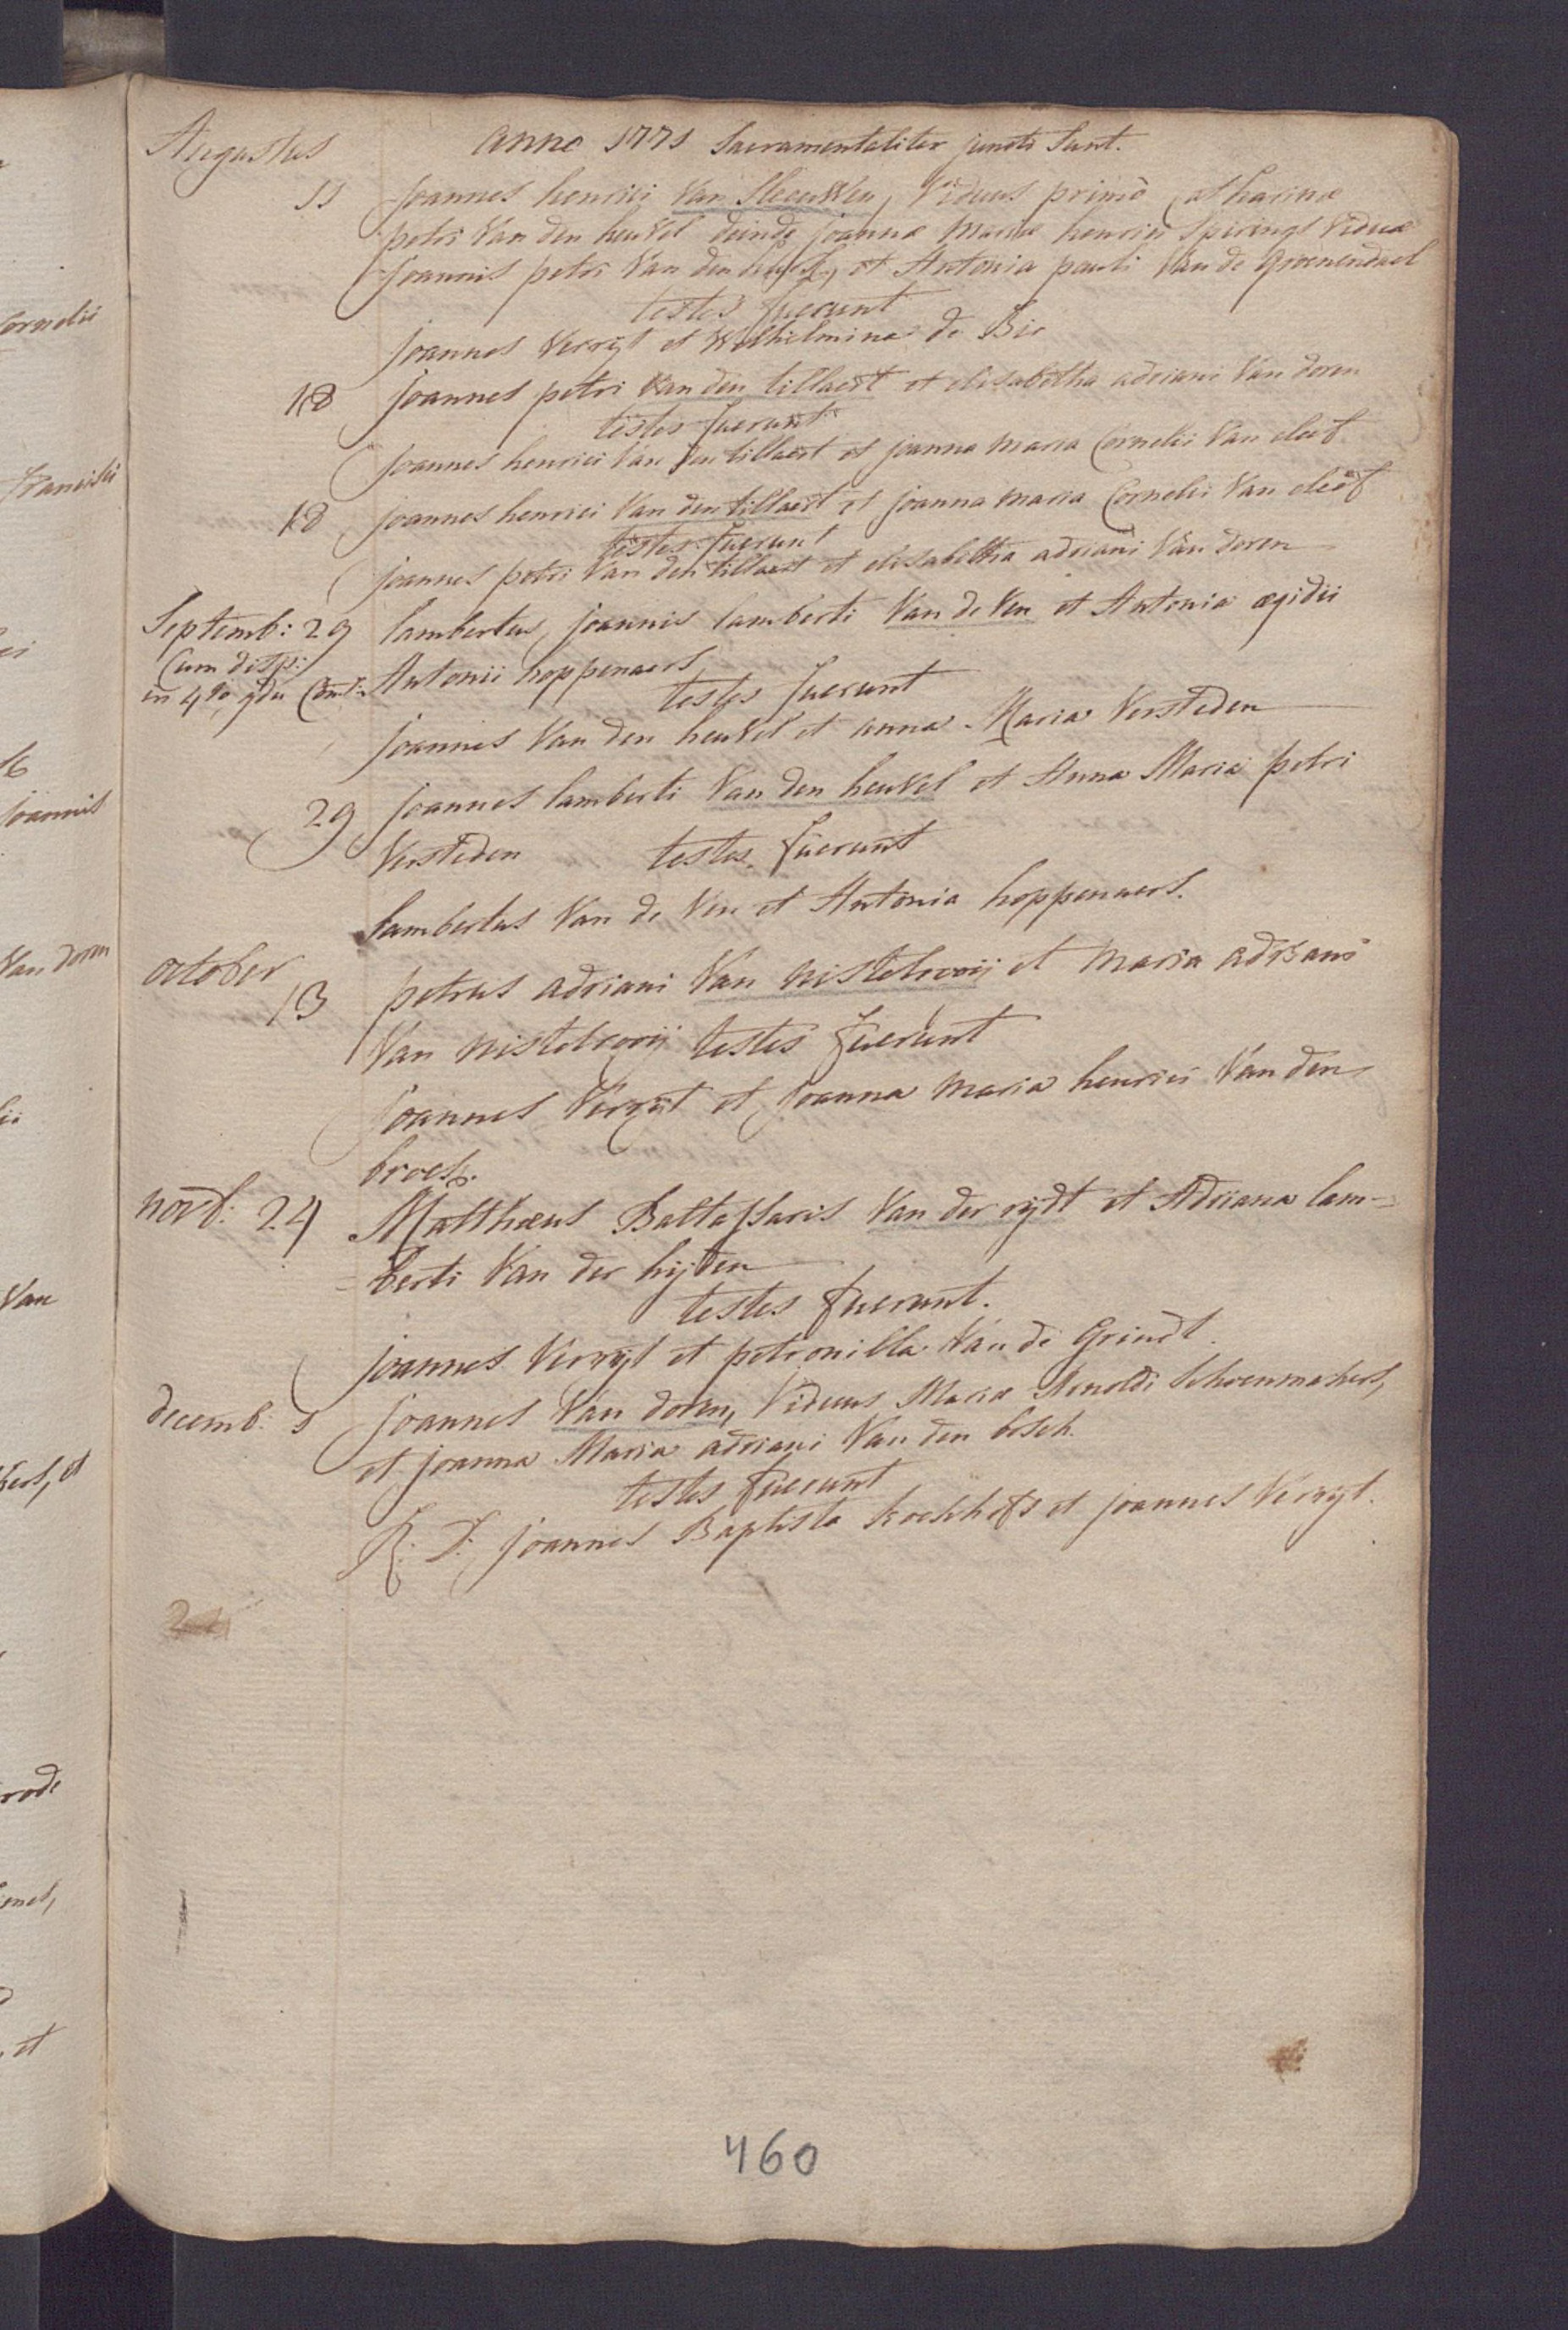 Augustus anno 1771 Sacramentaliter juncti Sunt.
11 Joannes henrici Van Sleeuwen, Viduus primò Catharinæ
petri Van den heuvel deinde joannæ Mariæ henrici Spirings Viduæ
Joannis petri Van den et Antonia pauli Van de Groenendael
testes fuerunt
Joannes Verrijt et Wilhelmina de Bie
18 Joannes petri Van den tillaert et elisabetha adriani Van doren
testes fuerunt
Joannes henrici Van den tillaert et joanna maria Cornelii Van cleef
18 joannes henrici Van den tillaert et joanna maria Cornelii Van cleef
testes fuerunt
joannes petri Van den tillaert et elisabetha adriani Van doren
Septemb: 29 lambertus joannis lamberti Van de Ven et Antonia ægidii
Cum disp: Antonii hoppenaers
in 4to testes fuerunt
Joannes Van den heuvel et anna Maria Versteden
29 Joannes lamberti Van den heuvel et Anna Maria petri
Versteden testes fuerunt
Lambertus Van de Ven et Antonia hoppenaers.
october
13 petrus adriani Van nistelrooij et maria adriani
Van nistelrooij testes fuerunt
Joannes Verrijt et Joanna maria henrici Van den
broek.
novb: 24 Matthæus Baltassaris Van der rijdt et Adriana lam-
-berti Van der hijden
testes fuerunt.
joannes Verrijt et petronilla Van de Grindt.
decemb: 1 Joannes Van doren, Viduus Mariæ Arnoldi Schoenmakers,
et joanna Maria adriani Van den bosch.
testes fuerunt
R: D: joannes Baptista kockhofs et joannes Verrijt.
460
Cornelii
Francisci
16
Joannis
Van doren
Van
et
rode
et